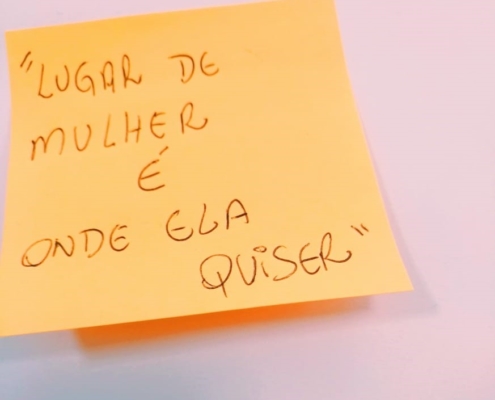 "LUGAR DE
MULHER
É
ONDE ELA
QUISER"